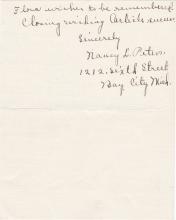 Flora wishes to be remembered.
Closing wishing Artists success
Sincerely
Nancy L. Peters.
1212. Sixth Street
Bay City Mich.